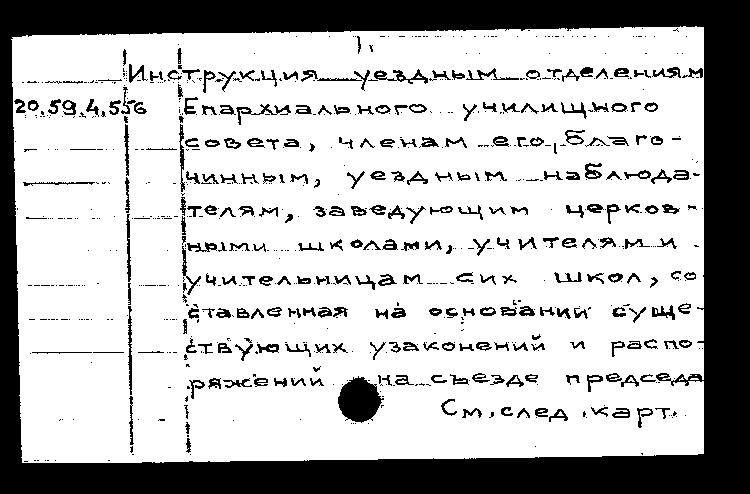 1.
Инструкция уездным отделениям
20.59.4.556 Епархиального училищного
совета, членам его, благо-
чинным, уездным наблюда-
телям, заведующим церков-
ными школами, учителям и
учительницам сих школ, со
ставленная на основании суще-
ствующих узаконений и распо-
ряжений на съезде председа
См. след. карт.